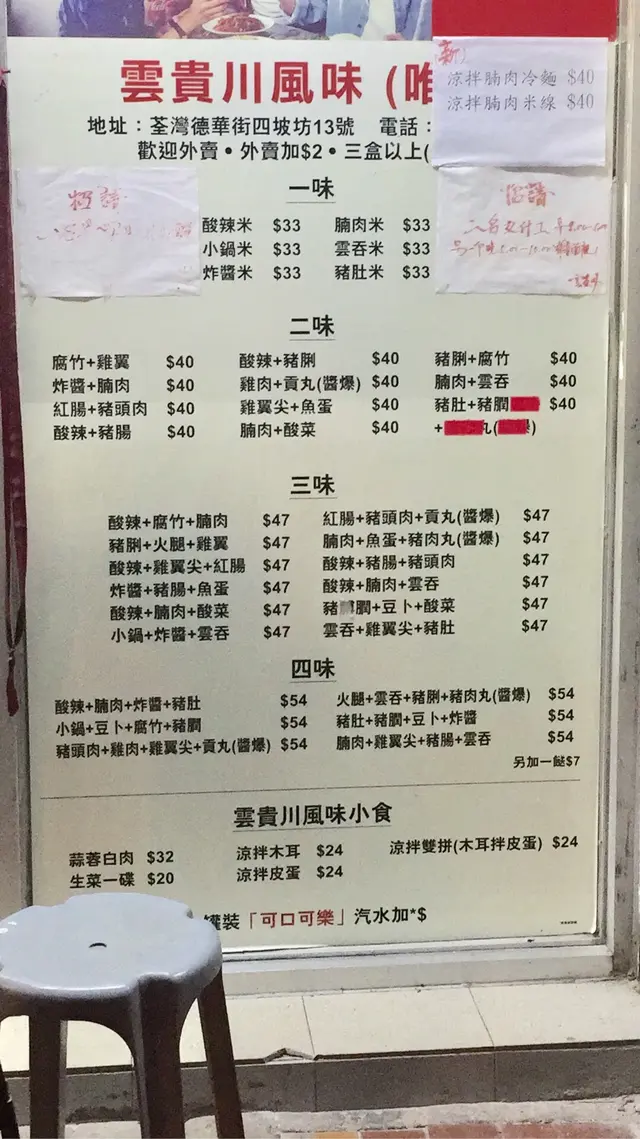 雲貴川風味 (唯
新
涼拌腩肉冷麵 $40
涼拌腩肉米線 $40
地址：荃灣德華街四坡坊13號 電話：
歡迎外賣•外賣加$2•三盒以上(
招請
一味
酸辣米 $33 腩肉米 $33
小鍋米 $33 雲吞米 $33
炸醬米 $33 豬肚米 $33
二味
腐竹+雞翼 $40 酸辣+豬脷 $40 豬脷+腐竹 $40
炸醬+腩肉 $40 雞肉+貢丸(醬爆) $40 腩肉+雲吞 $40
紅腸+豬頭肉 $40 雞翼尖+魚蛋 $40 豬肚+豬膶 $40
酸辣+豬腸 $40 腩肉+酸菜 $40 +丸()
三味
酸辣+腐竹+腩肉 $47 紅腸+豬頭肉+貢丸(醬爆) $47
豬脷+火腿+雞翼 $47 腩肉+魚蛋+豬肉丸(醬爆) $47
酸辣+雞翼尖+紅腸 $47 酸辣+豬腸+豬頭肉 $47
炸醬+豬腸+魚蛋 $47 酸辣+腩肉+雲吞 $47
酸辣+腩肉+酸菜 $47 豬膶+豆卜+酸菜 $47
小鍋+炸醬+雲吞 $47 雲吞+雞翼尖+豬肚 $47
四味
酸辣+腩肉+炸醬+豬肚 $54 火腿+雲吞+豬脷+豬肉丸(醬爆) $54
小鍋+豆卜+腐竹+豬膶 $54 豬肚+豬膶+豆卜+炸醬 $54
豬頭肉+雞肉+雞翼尖+貢丸(醬爆) $54 腩肉+雞翼尖+豬腸+雲吞 $54
另加一餸$7
雲貴川風味小食
蒜蓉白肉 $32 涼拌木耳 $24 涼拌雙拼(木耳拌皮蛋) $24
生菜一碟 $20 涼拌皮蛋 $24
罐裝「可口可樂」汽水加*$